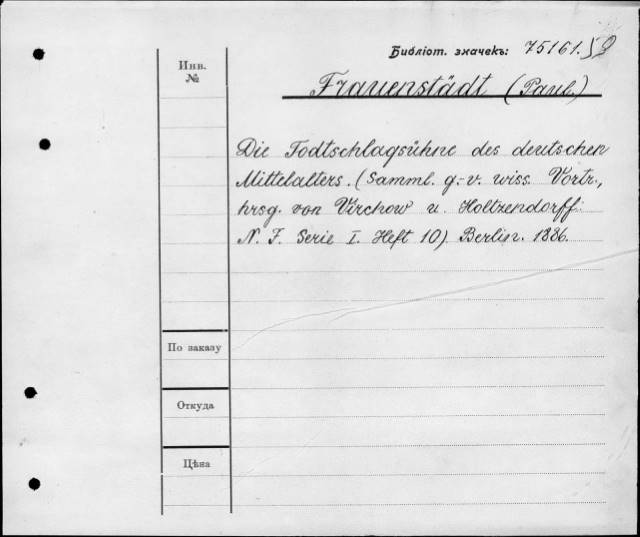 Библіот. значекъ: 75161.
Инв.
№
Frauenstädt (Paul)
Die Todtschlagsühne des deutschen
Mittelalters. (Samml. g.-v. wiss. Vortr.,
hrsg. von Virchow u. Holtzendorff.
N. F. Serie I. Heft 10) Berlin. 1886.
По заказу
Откуда
Цѣна